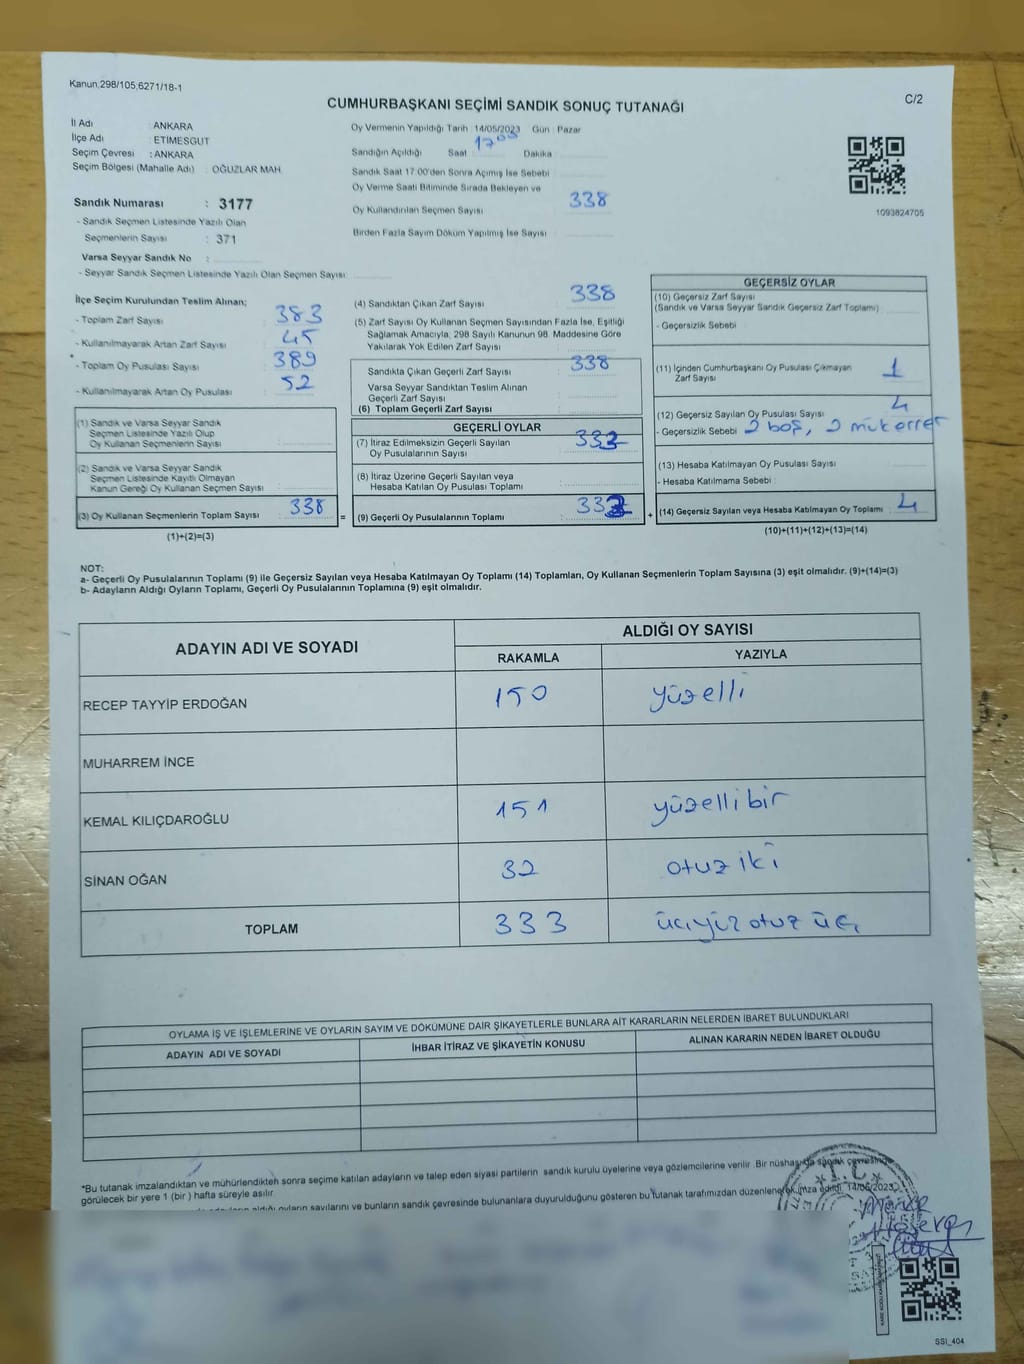 Kanun;298/105;6271/18-1
C/2
CUMHURBAŞKANI SEÇİMİ SANDIK SONUÇ TUTANAĞI
İl Adı : ANKARA
İlçe Adı : ETİMESGUT
Seçim Çevresi : ANKARA
Seçim Bölgesi (Mahalle Adı) : OĞUZLAR MAH.
Sandık Numarası : 3177
- Sandık Seçmen Listesinde Yazılı Olan
Seçmenlerin Sayısı : 371
Varsa Seyyar Sandık No :
- Seyyar Sandık Seçmen Listesinde Yazılı Olan Seçmen Sayısı:
Oy Vermenin Yapıldığı Tarih : 14/05/2023 Gün : Pazar
Sandığın Açıldığı Saat 17 00 Dakika
Sandık Saat 17.00'den Sonra Açımış İse Sebebi
Oy Verme Saati Bitiminde Sırada Bekleyen ve
Oy Kullandırılan Seçmen Sayısı 338
Birden Fazla Sayım Döküm Yapılmış İse Sayısı
1093824705
İlçe Seçim Kurulundan Teslim Alınan;
- Toplam Zarf Sayısı : 383
- Kullanılmayarak Artan Zarf Sayısı : 45
- Toplam Oy Pusulası Sayısı : 389
- Kullanılmayarak Artan Oy Pusulası : 52
(1) Sandık ve Varsa Seyyar Sandık
Seçmen Listesinde Yazılı Olup
Oy Kullanan Seçmenlerin Sayısı :
(2) Sandık ve Varsa Seyyar Sandık
Seçmen Listesinde Kayıtlı Olmayan
Kanun Gereği Oy Kullanan Seçmen Sayısı :
(3) Oy Kullanan Seçmenlerin Toplam Sayısı : 338
(1)+(2)=(3)
=
(4) Sandıktan Çıkan Zarf Sayısı : 338
(5) Zarf Sayısı Oy Kullanan Seçmen Sayısından Fazla İse, Eşitliği
Sağlamak Amacıyla, 298 Sayılı Kanunun 98. Maddesine Göre
Yakılarak Yok Edilen Zarf Sayısı
Sandıkta Çıkan Geçerli Zarf Sayısı 338
Varsa Seyyar Sandıktan Teslim Alınan
Geçerli Zarf Sayısı
(6) Toplam Geçerli Zarf Sayısı
GEÇERLİ OYLAR
(7) İtiraz Edilmeksizin Geçerli Sayılan
Oy Pusulalarının Sayısı
(8) İtiraz Üzerine Geçerli Sayılan veya
Hesaba Katılan Oy Pusulası Toplamı
(9) Geçerli Oy Pusulalarının Toplamı :
+
GEÇERSİZ OYLAR
(10) Geçersiz Zarf Sayısı
(Sandık ve Varsa Seyyar Sandık Geçersiz Zarf Toplamı)
- Geçersizlik Sebebi
(11) İçinden Cumhurbaşkanı Oy Pusulası Çıkmayan
Zarf Sayısı 1
(12) Geçersiz Sayılan Oy Pusulası Sayısı 4
- Geçersizlik Sebebi 2 boş, 2 mükerrer
(13) Hesaba Katılmayan Oy Pusulası Sayısı
- Hesaba Katılmama Sebebi :
(14) Geçersiz Sayılan veya Hesaba Katılmayan Oy Toplamı : 4
(10)+(11)+(12)+(13)=(14)
NOT:
a- Geçerli Oy Pusulalarının Toplamı (9) ile Geçersiz Sayılan veya Hesaba Katılmayan Oy Toplamı (14) Toplamları, Oy Kullanan Seçmenlerin Toplam Sayısına (3) eşit olmalıdır. (9)+(14)=(3)
b- Adayların Aldığı Oyların Toplamı, Geçerli Oy Pusulalarının Toplamına (9) eşit olmalıdır.
ADAYIN ADI VE SOYADI
ALDIĞI OY SAYISI
RAKAMLA YAZIYLA
RECEP TAYYİP ERDOĞAN 150 yüzelli
MUHARREM İNCE
KEMAL KILIÇDAROĞLU 151 yüzellibir
SİNAN OĞAN 32 otuziki
TOPLAM 333 üçyüz otuz üç
OYLAMA İŞ VE İŞLEMLERİNE VE OYLARIN SAYIM VE DÖKÜMÜNE DAİR ŞİKAYETLERLE BUNLARA AİT KARARLARIN NELERDEN İBARET BULUNDUKLARI
ADAYIN ADI VE SOYADI İHBAR İTİRAZ VE ŞİKAYETİN KONUSU ALINAN KARARIN NEDEN İBARET OLDUĞU
*Bu tutanak imzalandıktan ve mühürlendikten sonra seçime katılan adayların ve talep eden siyasi partilerin sandık kurulu üyelerine veya gözlemcilerine verilir. Bir nüshası da sandık çevresinde
görülecek bir yere 1 (bir ) hafta süreyle asılır.
aldığı oyların sayılarını ve bunların sandık çevresinde bulunanlara duyurulduğunu gösteren bu tutanak tarafımızdan düzenlenerek imza edildi. 14/05/2023
T.C.
SSI_404